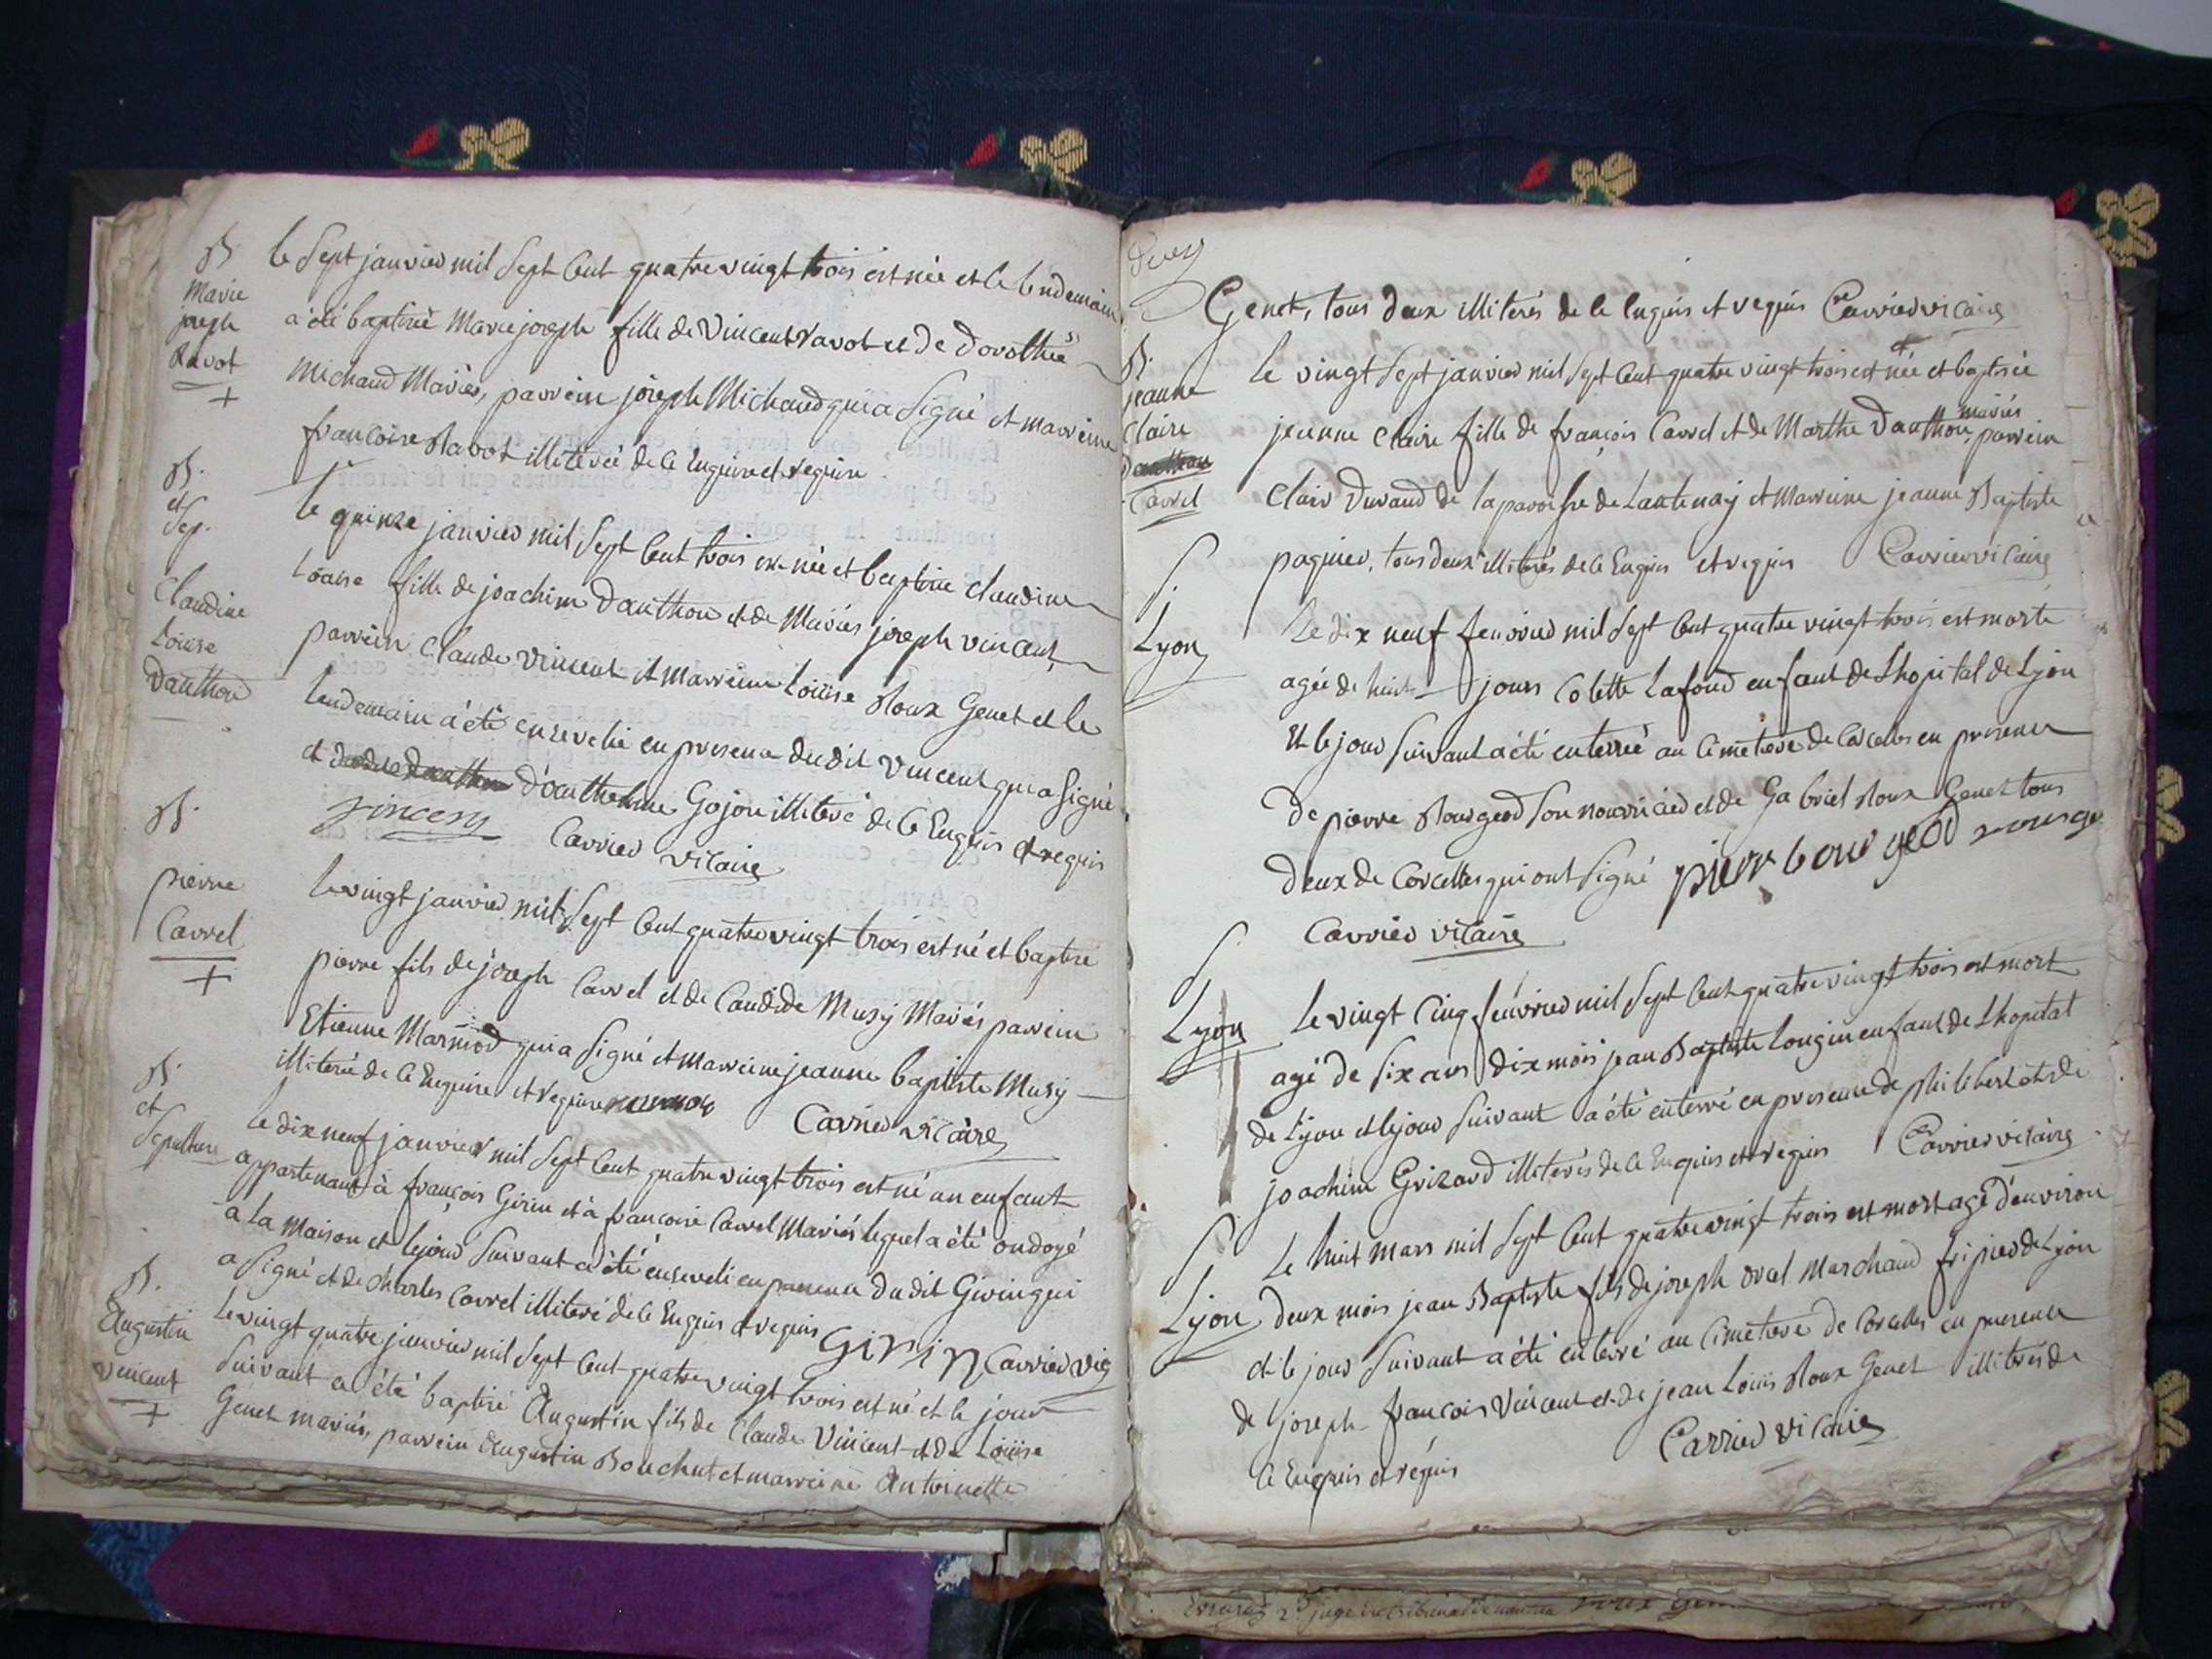 B
Marie
joseph
Ravot
+
le Sept janvier mil Sept Cent quatre vingt trois est née et le lendemain
a été baptisée Marie joseph fille de Vincent Ravot et de dorothée
Michaud Mariés, parrein joseph Michaud qui a Signé et marreine
francoise Ravot illiterée de ce Enquire et require
B.
et
Sep.
Claudine
Loüise
Danthon
le quinze janvier mil Sept Cent trois est née et baptisée Claudine
Loüise fille de joachim Danthon et de Mariés joseph vincent
parrein Claude Vincent et Marreine Loüise Roux Genet et le
lendemain a été ensevelie en presence dudit Vincent qui a Signé
et d'anthelme Gojon illiteré de ce Enquis et requis
Vincent Carrier vicaire
B.
pierre
Carrel
+
le vingt janvier mil Sept Cent quatre vingt trois est né et baptisé
pierre fils de joseph Carrel et de Candide Musy Mariés parrein
Etienne Marmod qui a Signé et Marreine jeanne baptiste Musy
illiterée de ce Enquire et require marmod Carrier vicaire
B.
et
Sepulture
le dix neuf janvier mil Sept Cent quatre vingt trois est né un enfant
appartenant à françois Girin et à francoise Carrel Mariés lequel a été ondoyé
a la Maison et le jour Suivant a été enseveli en presence dudit Girin qui
a Signé et de charles Carrel illiteré de ce Enquis et requis Girin Carrier vic
B.
Augustin
Vincent
+
le vingt quatre janvier mil Sept Cent quatre vingt trois est né et le jour
Suivant a été baptisé Augustin fils de Claude Vincent et de Loüise
Genet mariés, parrein Augustin Bouchut et marreine Antoinette
Genet, tous deux illiterés de ce Enquis et requis Carrier vicaire
B.
jeanne
Claire
Danthon
Carrel
le vingt Sept janvier mil Sept Cent quatre vingt trois est née et baptisée
jeanne Claire fille de françois Carrel et de Marthe Danthon mariés, parrein
Clair Durand de la paroisse de Lantenay et Marreine jeanne Baptiste
paquier, tous deux illiterés de ce Enquis et requis Carrier vicaire
S.
Lyon
Le dix neuf fevrier mil Sept Cent quatre vingt trois est morte
agée de huit jours Colette Lafond enfant de Lhopital de Lyon
Et le jour Suivant a été enterrée au Cimetiere de Corcelles en presence
de pierre Bourgeod Son nourricier et de Gabriel Roux Genet tous
deux de Corcelles qui ont Signé pier bourgeod rouge
Carrier vicaire
S
Lyon
Le vingt Cinq fevrier mil Sept Cent quatre vingt trois est mort
agé de Six ans dix mois jean Baptiste Longin enfant de Lhopital
de Lyon et le jour Suivant a été enterré en presence de philibert et de
joachim Grizard illiterés de ce Enquis et requis Carrier vicaire
S
Lyon
Le huit mars mil Sept Cent quatre vingt trois est mort agé d'environ
deux mois jean Baptiste fils de joseph oval Marchand fripier de Lyon
et le jour Suivant a été enterré au Cimetiere de Corcelles en presence
de joseph francois Vincent et de jean Loüis Roux Genet illiterés de
ce Enquis et requis Carrier vicaire
juge